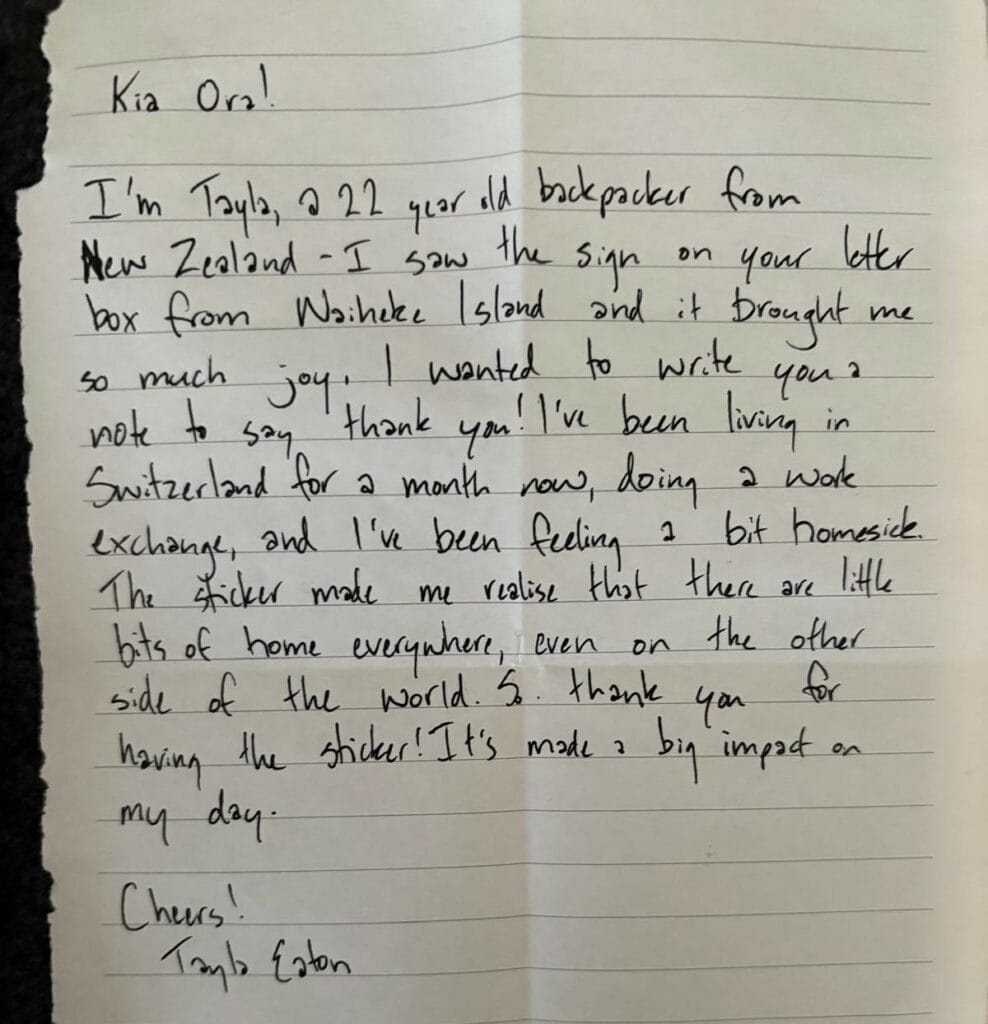 Kia Ora!
I'm Tayla, a 22 year old backpacker from
New Zealand - I saw the sign on your letter
box from Waiheke Island and it brought me
so much joy. I wanted to write you a
note to say thank you! I've been living in
Switzerland for a month now, doing a work
exchange, and I've been feeling a bit homesick.
The sticker made me realise that there are little
bits of home everywhere, even on the other
side of the world. So. thank you for
having the sticker! It's made a big impact on
my day.
Cheers!
Tayla Eaton